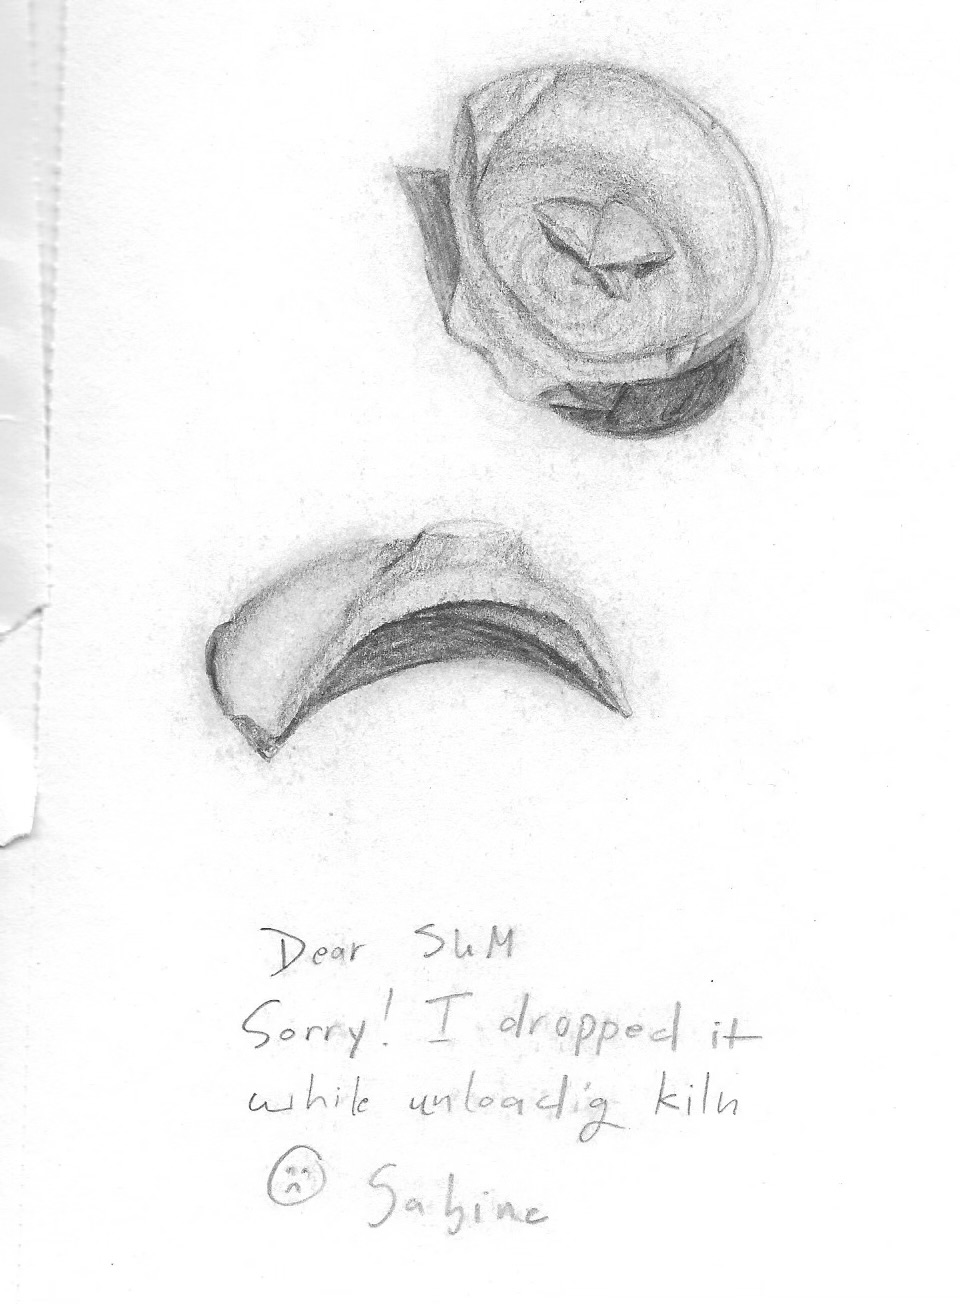 Dear SUM
Sorry! I dropped it
while unloadig kiln
Sabine